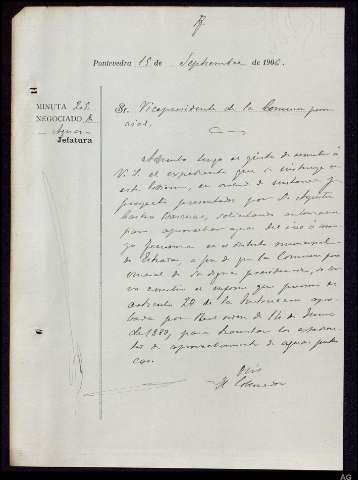 Pontevedra 15 de Septiembre de 1906.
MINUTA
NEGOCIADO
Aguas
Jefatura
Sr. Vicepresidente de la Comisión provincial.
Adjunto tengo el gusto de remitir á
V.S. el expediente que se instruye
en esta
proyecto presentado por D. Agustín
solicitando
para aprovechar aguas del rio
en el distrito municipal
de Estrada, a fin de que la Comisión pro
vincial de su digna presidencia, se sir
va emitir el informe que previene el
artículo 20 de la Instrucción apro
bada por Real orden de 14 de Junio
de 1883, para tramitar los expedien
tes de aprovechamiento de aguas públi
cas.
Dios
El Gobernador
AG